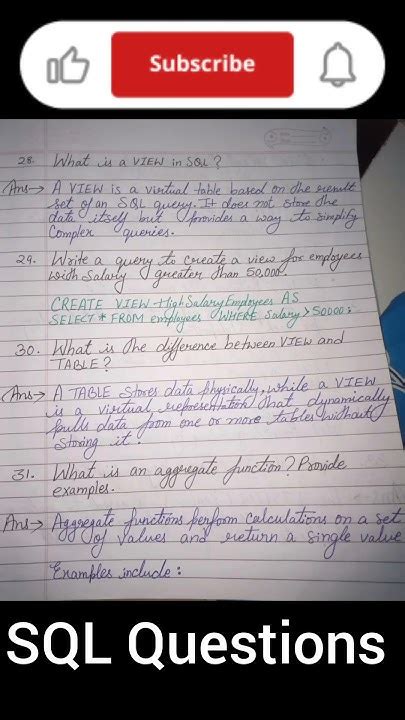 Subscribe
28. What is a VIEW in SQL?
Ans→ A VIEW is a virtual table based on the result
set of an SQL query. It does not store the
data itself but provides a way to simplify
Complex queries.
29. Write a query to create a view for employees
with Salary greater than 50,000.
CREATE VIEW HighSalaryEmployees AS
SELECT * FROM employees WHERE Salary > 50000;
30. What is the difference between VIEW and
TABLE?
Ans→ A TABLE stores data physically, while a VIEW
is a virtual representation that dynamically
pulls data from one or more tables without
Storing it.
31. What is an aggregate function? Provide
examples.
Ans→ Aggregate functions perform calculations on a set
of values and return a single value
Examples include:
SQL Questions